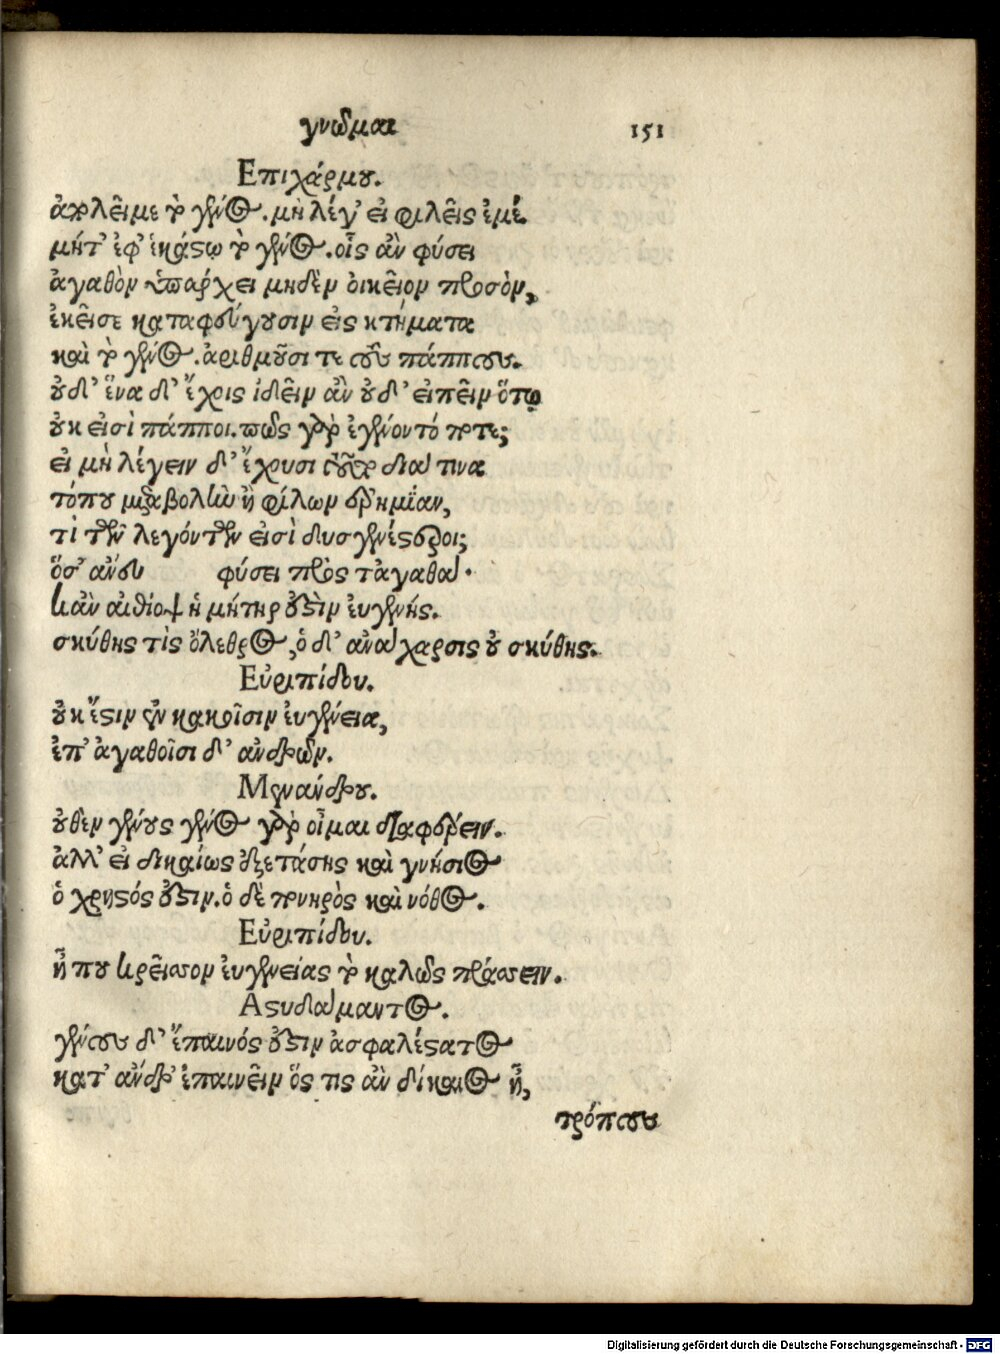 γνῶμαι 151
Επιχάρμου.
ἀπολεῖ με τὸ γένος. μὴ λέγ' εἰ φιλεῖς ἐμέ.
μήτ' ἐφ' ἑκάστῳ τὸ γένος. οἷς ἂν φύσει
ἀγαθὸν ὑπάρχει μηδὲν οἰκεῖον προσὸν,
ἐκεῖσε καταφεύγουσιν εἰς κτήματα
καὶ τὸ γένος. ἀριθμοῦσί τε τοὺς πάππους.
οὐδ' ἕνα δ' ἔχοις ἰδεῖν ἂν οὐδ' εἰπεῖν ὅτῳ
οὐκ εἰσὶ πάπποι. πῶς γὰρ ἐγένοντό ποτε;
εἰ μὴ λέγειν δ' ἔχουσι τούτους διά τινα
τόπου μεταβολὴν ἢ φίλων ἐρημΐαν,
τὶ τῶν λεγόντων εἰσὶ δυσγενέστεροι;
ὃς ἂν εὖ φύσει πρὸς τἀγαθά.
κἂν αἰθίοψ ἡ μήτηρ ἐστὶν εὐγενής.
σκύθης τὶς ὄλεθρος, ὁ δ' ἀνάχαρσις οὐ σκύθης.
Εὐριπίδου.
οὐκ ἔστιν ἐν κακοῖσιν εὐγένεια,
ἐπ' ἀγαθοῖσι δ' ἀνδρῶν.
Μενάνδρου.
οὐθὲν γένους γένος γὰρ οἶμαι διαφέρειν.
ἀλλ' εἰ δικαίως ἐξετάσῃς καὶ γνήσιος
ὁ χρηστός ἐστιν. ὁ δὲ πονηρὸς καὶ νόθος.
Εὐριπίδου.
ἦ που κρεῖσσον εὐγενείας τὸ καλῶς πράσσειν.
Αστυδάμαντος.
γένους δ' ἔπαινός ἐστιν ἀσφαλέστατος
κατ' ἄνδρ' ἐπαινεῖν ὅς τις ἂν δίκαιος ᾖ,
τρόπους
Digitalisierung gefördert durch die Deutsche Forschungsgemeinschaft - DFG